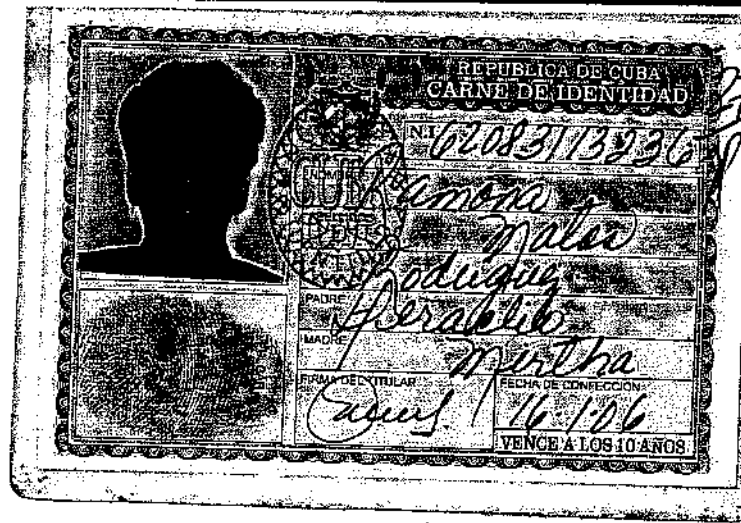 REPUBLICA DE CUBA
CARNE DE IDENTIDAD
N.I. 62083113236
NOMBRE
Ramona
APELLIDOS
Matos
Rodriguez
PADRE
Heraclio
MADRE
Mirtha
FIRMA DEL TITULAR
FECHA DE CONFECCION
16-1-06
VENCE A LOS 10 AÑOS